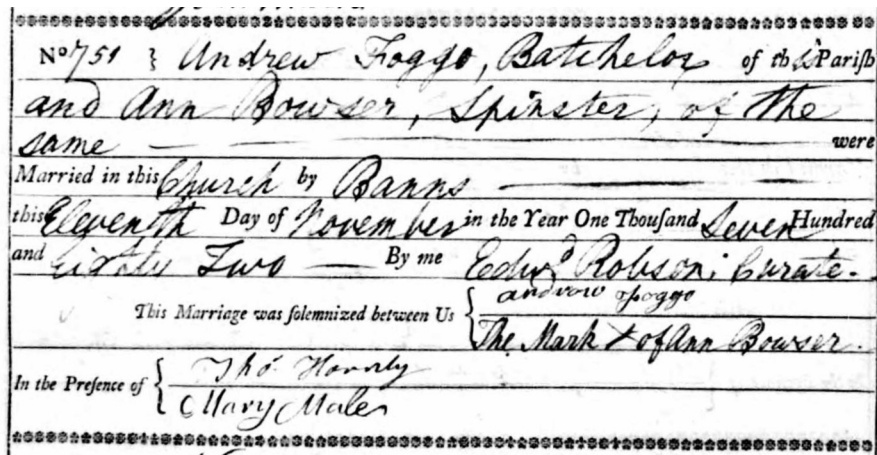 No 751 } Andrew Foggo, Batchelor of this Pariſh
and Ann Bowser, Spinster, of the
same — were
Married in this Church by Banns —
this Eleventh Day of November in the Year One Thouſand Seven Hundred
and Eighty Two — By me Edwd. Robson; Curate.
This Marriage was ſolemnized between Us { androw Foggo
The Mark X of Ann Bowser.
In the Preſence of { Tho.
Mary Males